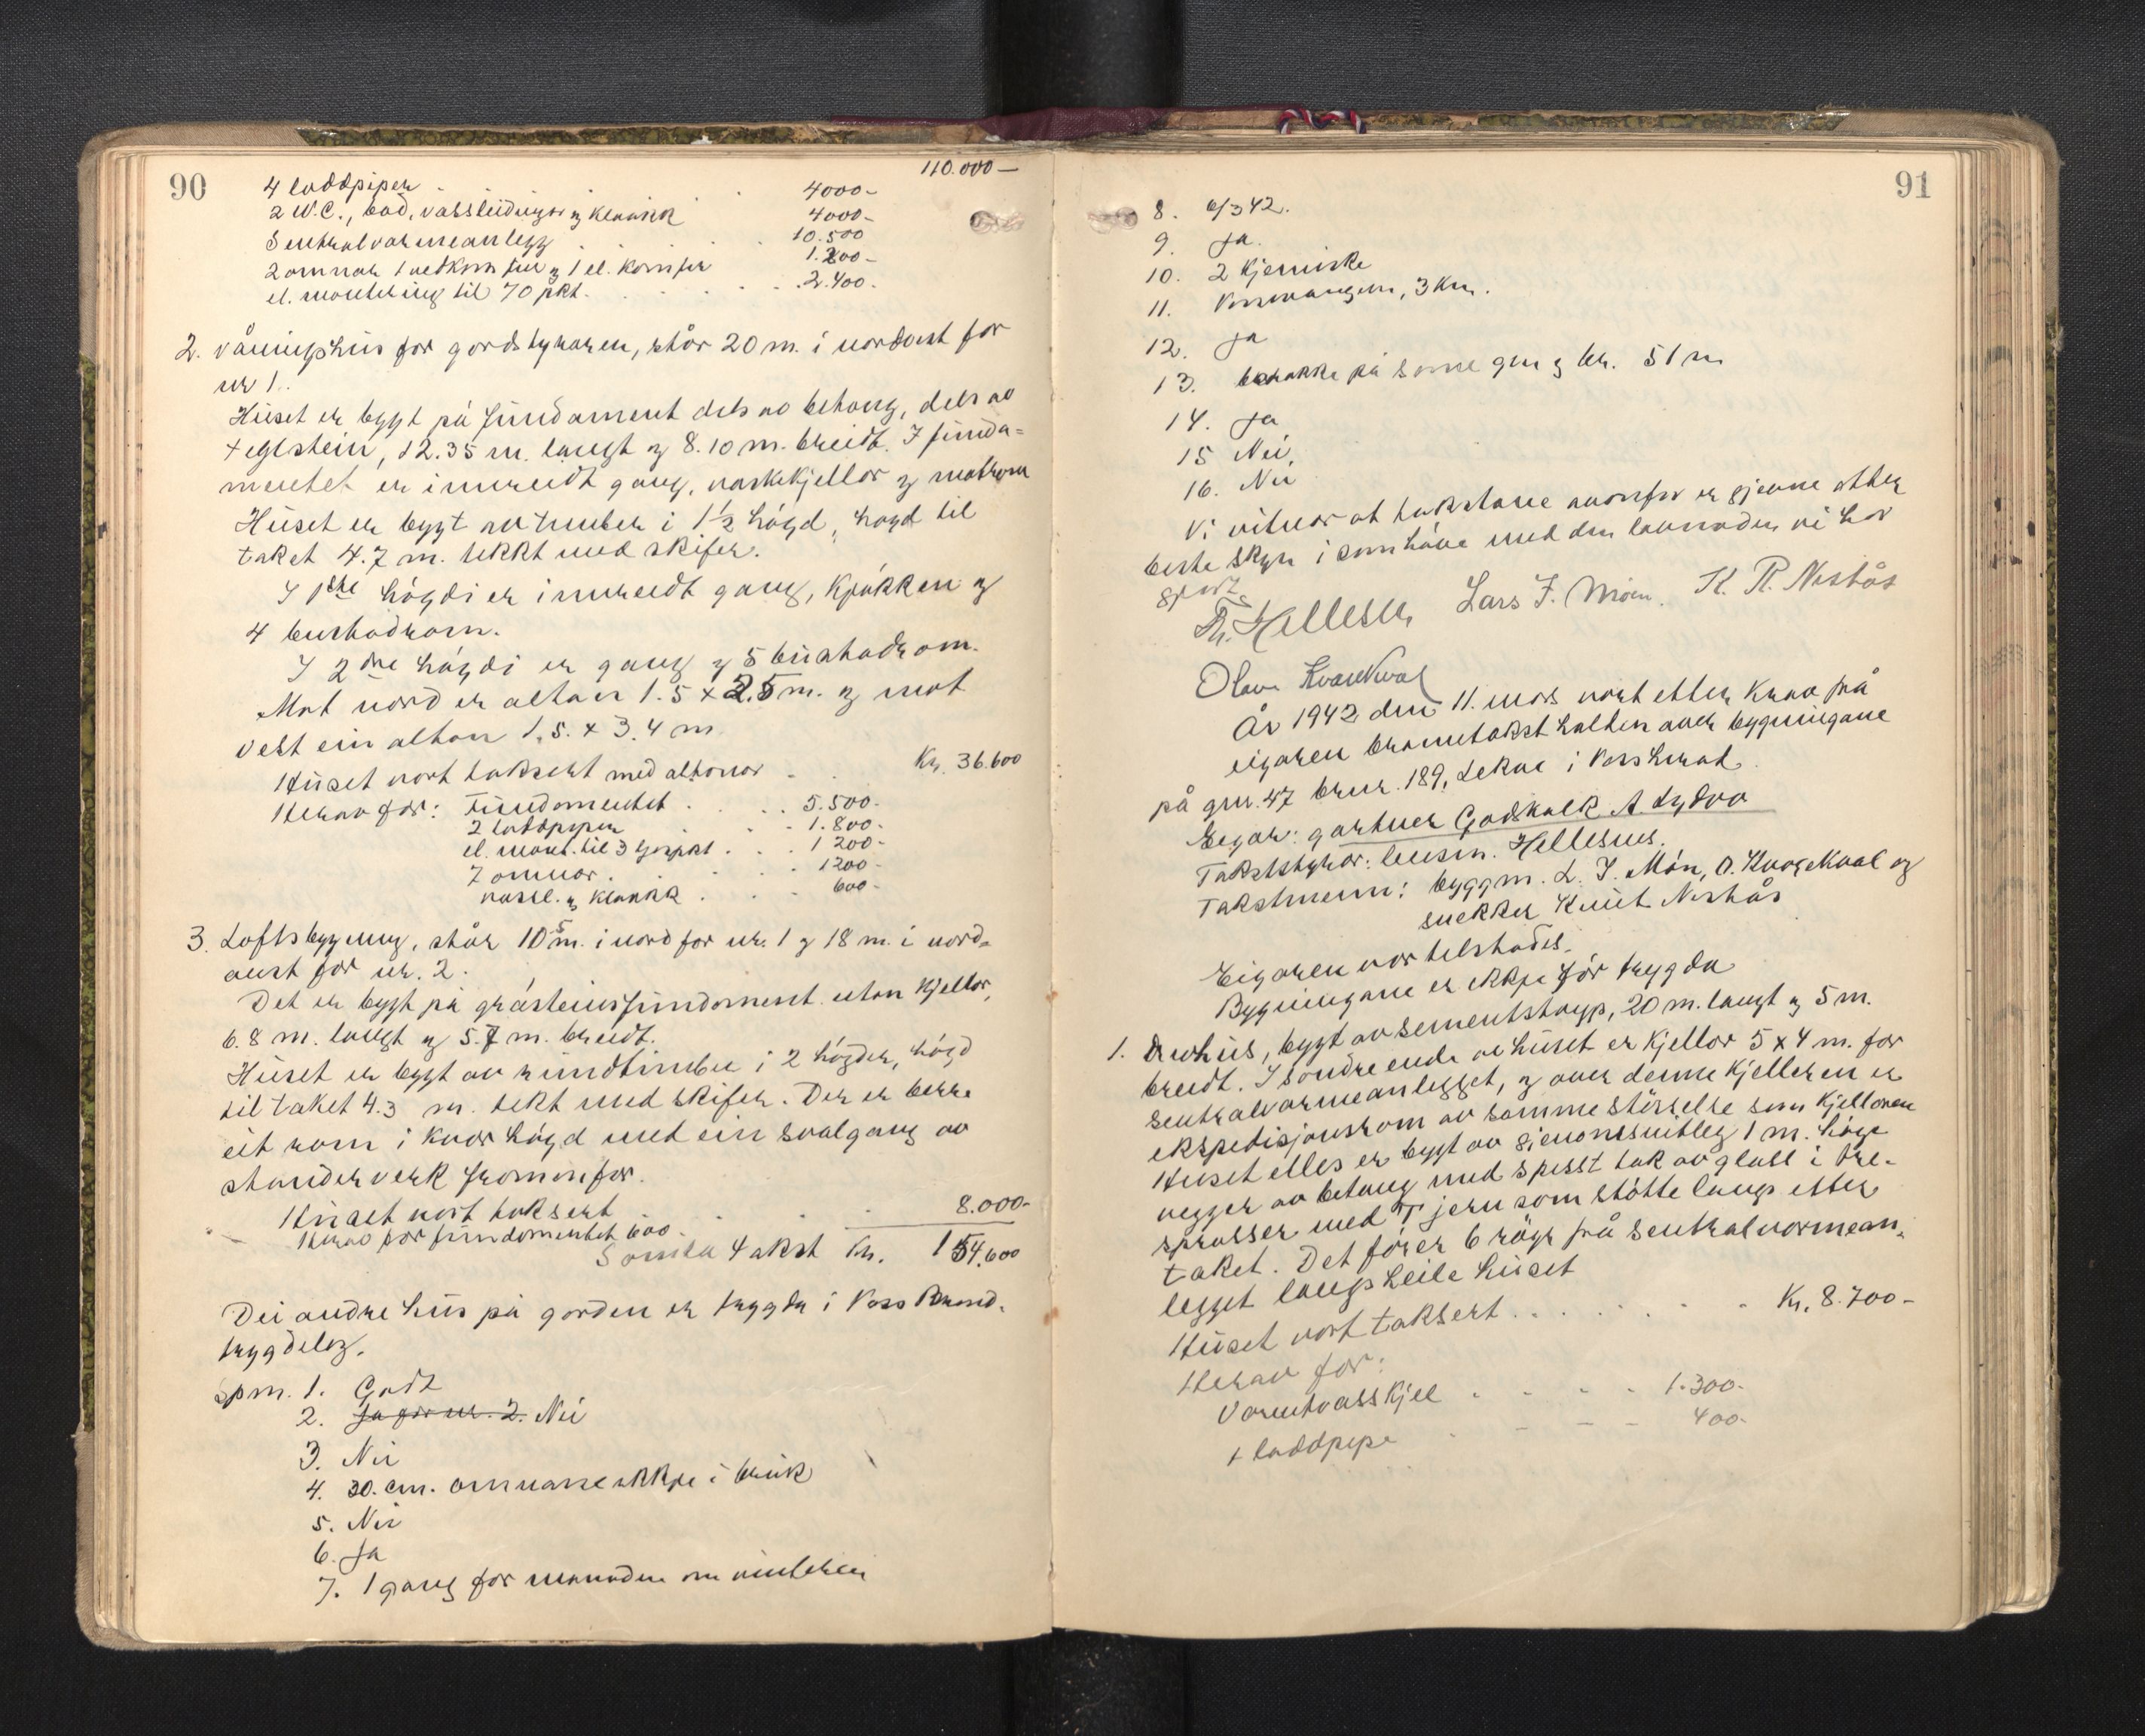 90
110.000—
4 loddpiper . 4000-
2 W.C., bad, vassleidingar og kloakk 4000-
Sentralvarmeanlegg . . . 10.500
2 omnar 1 vedkomfur og 1 el. komfur 1.200-
el. montering til 70 pkt. . . . . 2.400.
2. våningshus for gardstyraren, står 20 m. i nordaust for
nr 1.
Huset er bygt på fundament dels av betong, dels av
teglstein, 12.35 m. langt og 8.10 m. breidt. I funda=
mentet er innreidt gang, vaskekjellar og matrom
Huset er bygt av tømber i 1½ högd, høgd til
taket 4.7 m. tekkt med skifer.
I 1ste högdi er innreidt gang, kjökken og
4 bustadrom.
I 2dre högdi er gang og 5 bustadrom.
Mot nord er altan 1.5 x 2.5 m. og mot
vest ein altan 1.5. x 3.4 m
Huset vart taksert med altanar . . Kr. 36.600
Herav for: Fundamentet . . . . 5.500-
2 loddpiper . . . 1.800-
el. mont. til 3 . . . 1 200-
7 omnar . . . . 1200-
vassl. og kloakk . . . 600-
3. Loftsbygning, står 10 5 m. i nord for nr. 1 og 18 m. i nord-
aust for nr. 2.
Det er bygt på gråsteinsfundament utan kjellar,
6.8 m. langt og 5.7 m. breidt.
Huset er bygt av rundtimber i 2 högder, högd
til taket 4.3 m. tekt med skifer. Der er berre
eit rom i kvar högd med ein svalgang av
stenderverk framanfor.
Huset vart taksert . . . 8.000-
Herav for fundamentet 600.
Samla takst Kr. 154.600
Dei andre hus på garden er trygda i Voss Brand-
trygdelag.
Spm. 1. Godt
2. Ja for nr. 2. Nei
3. Nei
4. 30. cm. omnane ikkje i bruk
5. Nei
6. Ja
7. 1 gang for månaden om vinteren
91
8. 6/3 42.
9. Ja.
10. 2 kjemiske
11. Vossvangen, 3 km.
12. Ja
13. på same gnr og br. 51 m
14. Ja
15 Nei,
16. Nei
Vi vitnar at takstane ovanfor er gjevne etter
beste skyn i samhöve med den lærnaden vi har
gjort.
Th. Hellesen Lars J. Møen. K. R. Nestås
Olav Kvarekval
År 1942 den 11. mars vart etter krav frå
eigaren branntakst halden over bygningane
på gnr. 47 brnr. 189, Lekve i Voss herad.
Eigar: gartner Godskalk A. Lydvo
Takststyrar: lensm. Hellesnes.
Takstmenn: byggm. L. J. Møn, O. Kvarekval og
snekker Knut Nestås
Eigaren var tilstades.
Bygningane er ikkje för trygda
1. Drivhus, bygt av sementstøyp, 20 m. langt og 5 m.
breidt. I söndre ende av huset er kjellar 5 x 4 m. for
sentralvarmeanlegget, og over denne kjelleren er
ekspedisjonsrom av samme störrelse som kjellaren
Huset elles er bygt av gjenomsnitleg 1 m. höge
vegger av betong med spisst tak av glass i tre-
sprosser med T jern som stötte langs etter
taket. Det förer 6 röyr frå sentralvarmean-
legget langs heile huset
Huset vart taksert . . . . . . . Kr. 8.700-
Herav for:
Varmtvasskjel . . . . 1.300-
1 loddpipe . - - - 400-